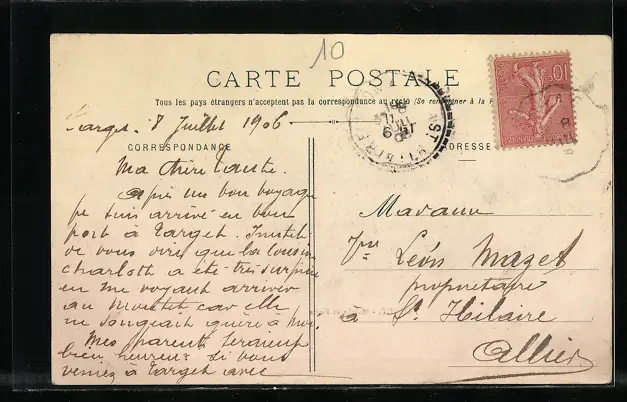 10
CARTE POSTALE
Tous les pays étrangers n'acceptent pas la correspondance au recto (Se renseigner à la
Target 8 Juillet 1906
CORRESPONDANCE
ADRESSE
Ma chère tante.
Après un bon voyage
je suis arrivé en bon
port à Target. Inutile
de vous dire que la cousine
Charlotte a été très surprise
en me voyant arriver
au Montet car elle
ne songeait guère à moi.
Mes parents seraient
bien heureux si vous
veniez à Target avec
Madame
Vve Léon Mazet
propriétaire
à St Hilaire
Allier